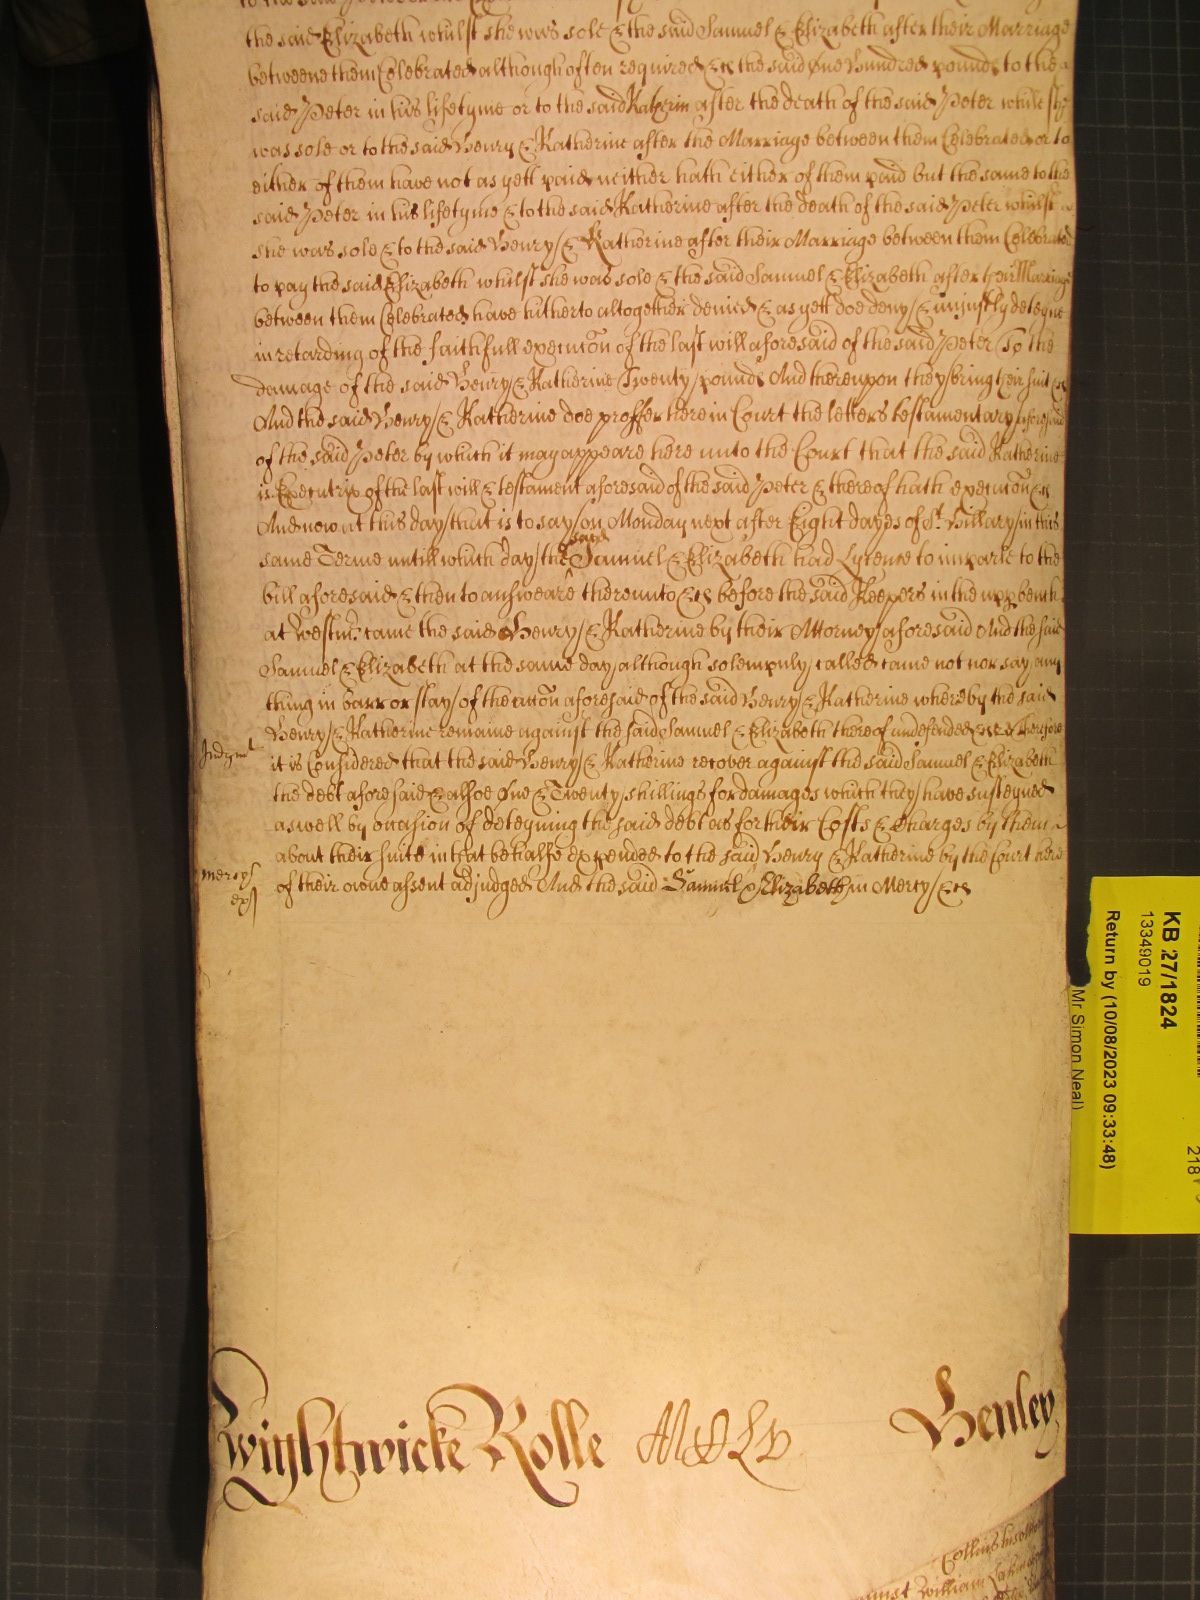 the said Elizabeth whilst she was sole & the said Samuel & Elizabeth after their Marriage
betweene them Celebrated although often required &c the said One Hundred pounds to the
said Peter in his lifetyme or to the said Katherin after the death of the said Peter while she
was sole or to the said Henry & Katherine after the Marriage between them Celebrated or to
either of them have not as yett paid neither hath either of them paid but the same to the
said Peter in his lifetyme & to the said Katherine after the death of the said Peter whilst
she was sole & to the said Henry & Katherine after their Marriage between them Celebrated
to pay the said Elizabeth whilst she was sole & the said Samuel & Elizabeth after their Marriage
between them Celebrated have hitherto altogether denied & as yett doe deny & unjustly deteyne
in retarding of the faithfull execucon of the last will aforesaid of the said Peter To the
damage of the said Henry & Katherine Twenty pounds And thereupon they bring their suit &c
And the said Henry & Katherine doe proffer here in Court the letters testamentary aforesaid
of the said Peter by which it may appeare here unto the Court that the said Katherine
is Executrix of the last will & testament aforesaid of the said Peter & thereof hath execucon &c
And now at this day that is to say on Monday next after Eight dayes of St. Hillary in this
same Terme untill which day the said Samuel & Elizabeth had Lycence to imparle to the
bill aforesaid & then to answeare thereunto &c before the said Keepers in the upp bench
at Westmr. came the said Henry & Katherine by their Attorney aforesaid And the said
Samuel & Elizabeth at the same day although solempnly called came not nor say any
thing in barr or stay of the accon aforesaid of the said Henry & Katherine whereby the said
Henry & Katherine remaine against the said Samuel & Elizabeth thereof undefended &c Therefore
Judgmt
it is Considered that the said Henry & Katherine recover against the said Samuel & Elizabeth
the debt aforesaid & alsoe One & Twenty shillings for damages which they have susteyned
aswell by occasion of deteyning the said debt as for their Costs & Charges by them
about their suite in that behalfe expended to the said Henry & Katherine by the Court here
mercy
of their owne assent adjudged And the said Samuel & Elizabeth in Mercy &c
Wightwicke Rolle
Henley
KB 27/1824
13349019
Return by (10/08/2023 09:33:48)
Mr Simon Neal)
Collins
William